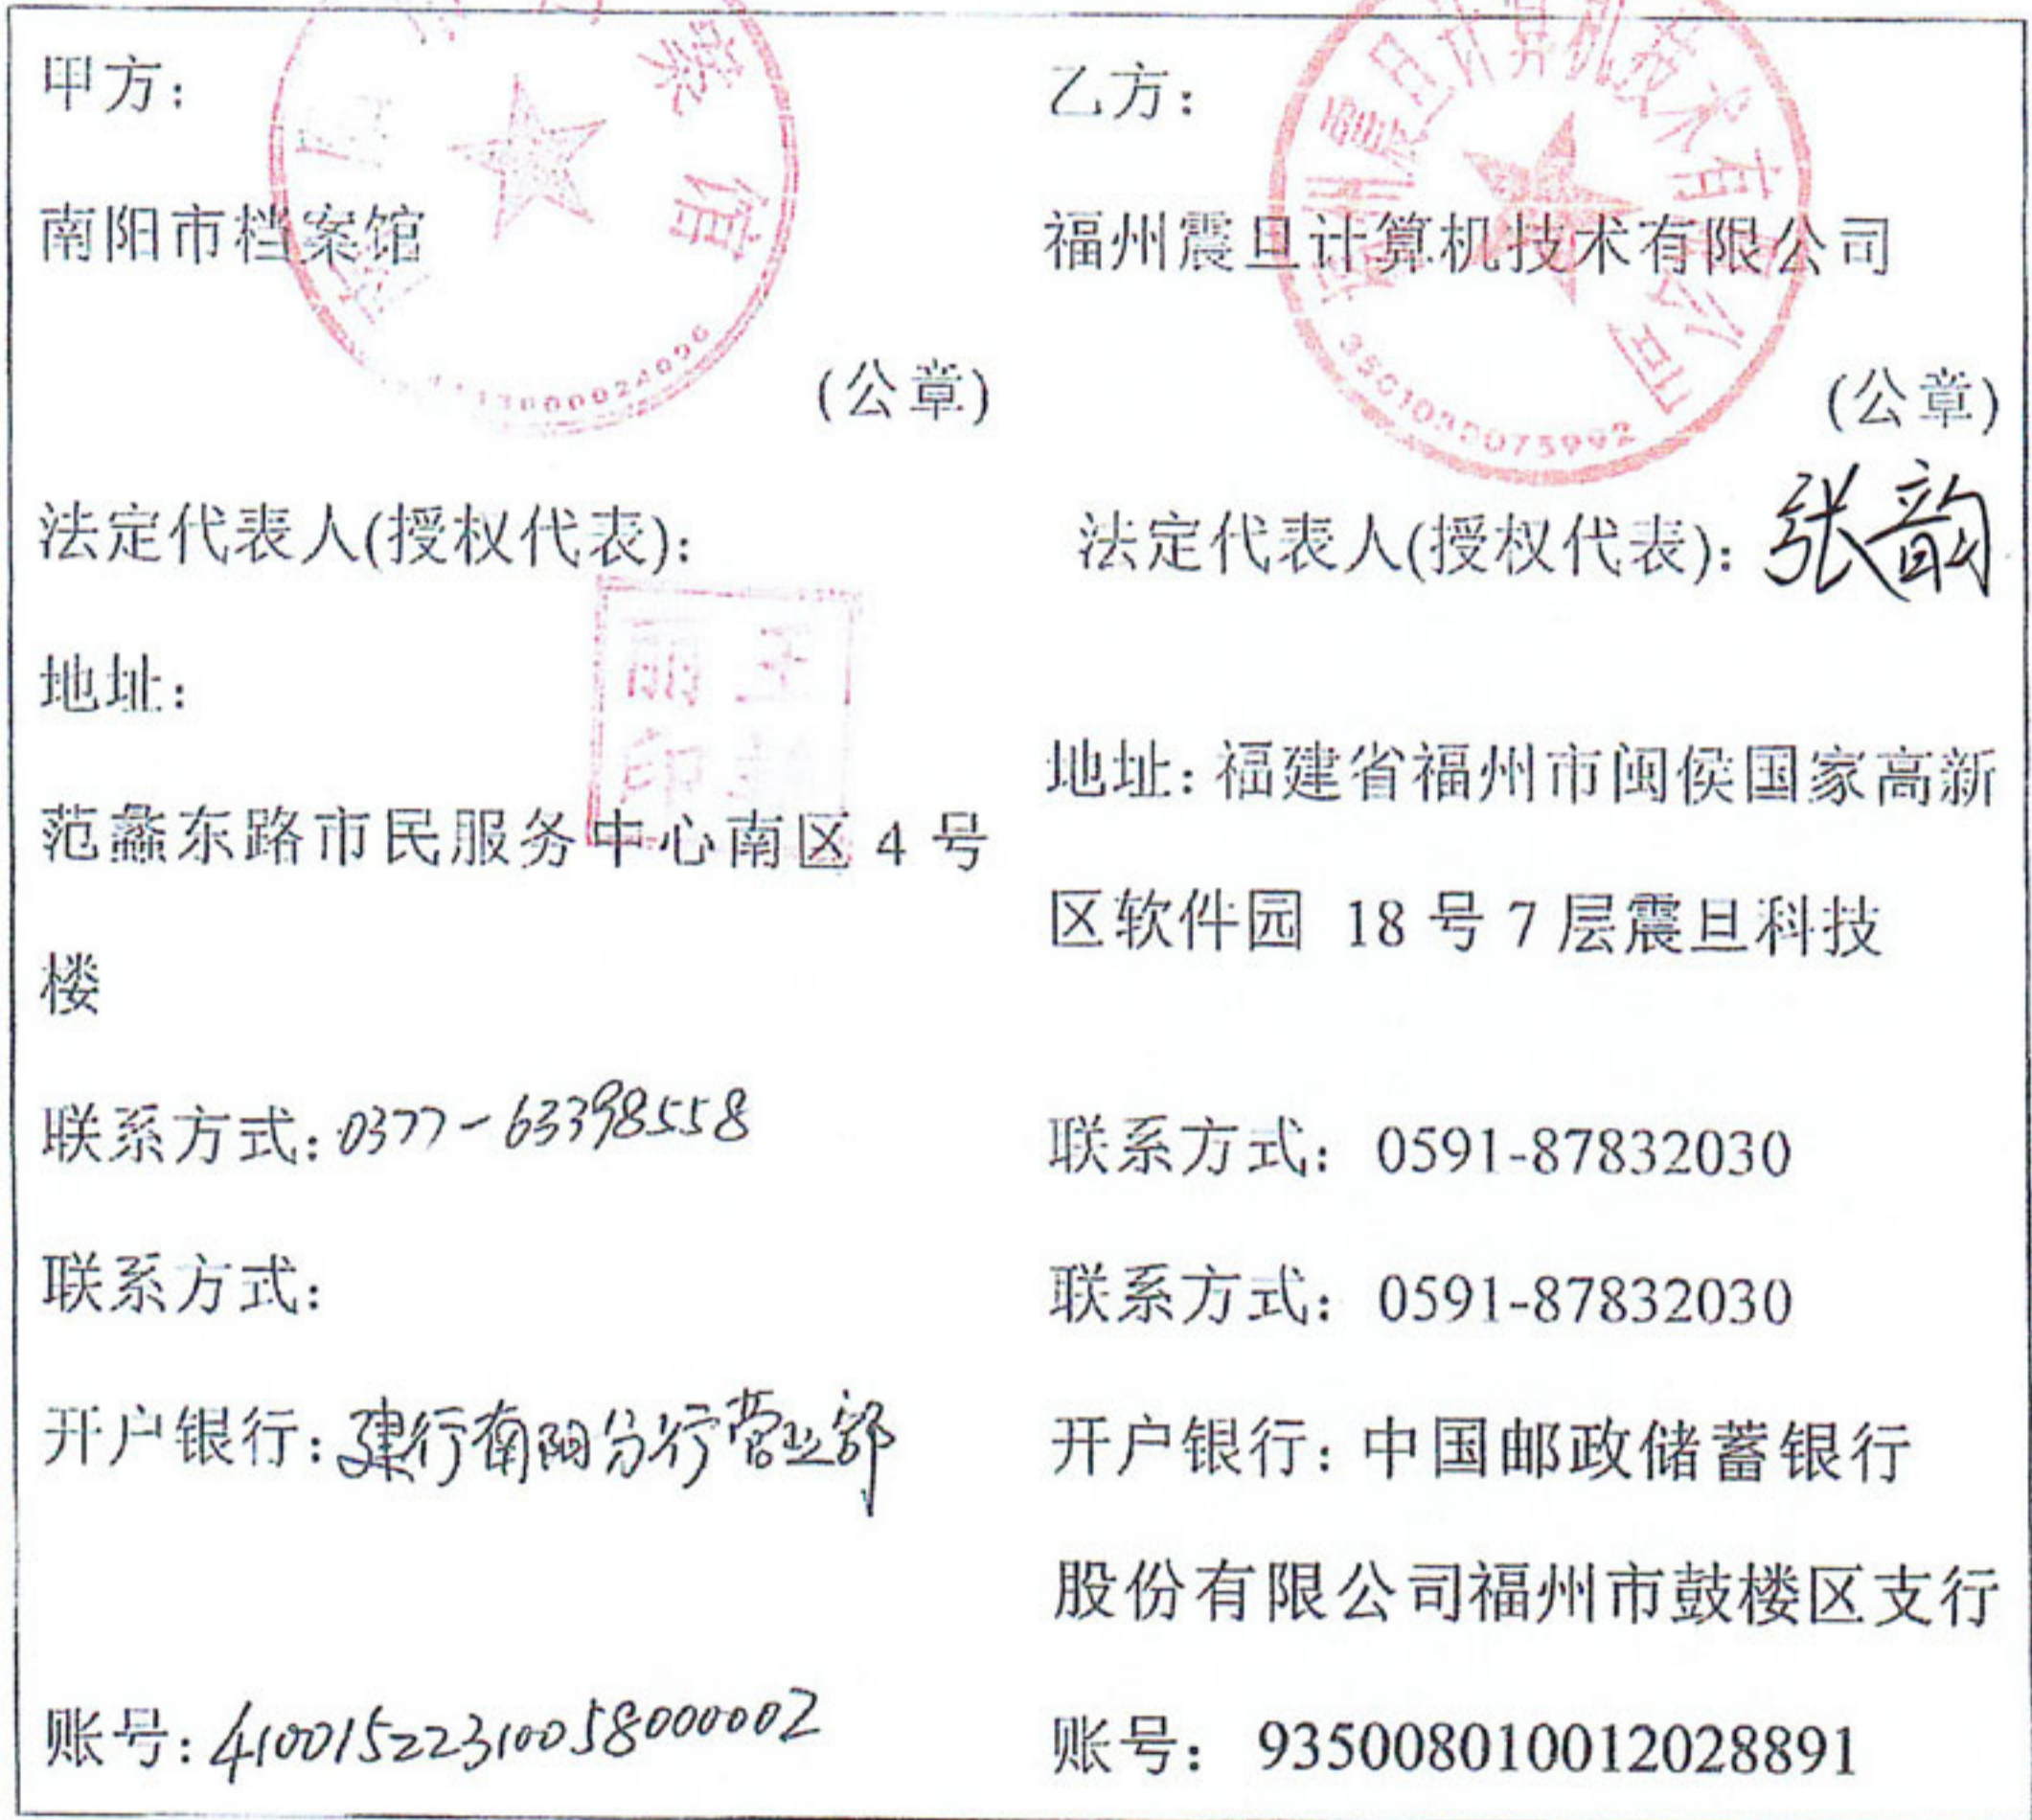 甲方：
南阳市档案馆
(公章)
法定代表人(授权代表)：
地址：
范蠡东路市民服务中心南区 4 号
楼
联系方式：0377-63398558
联系方式：
开户银行：建行南阳分行营业部
账号：41001522310058000002
乙方：
福州震旦计算机技术有限公司
(公章)
法定代表人(授权代表)：张韵
地址：福建省福州市闽侯国家高新
区软件园 18 号 7 层震旦科技
联系方式：0591-87832030
联系方式：0591-87832030
开户银行：中国邮政储蓄银行
股份有限公司福州市鼓楼区支行
账号：935008010012028891
案馆
州震旦计算机技术有限公司